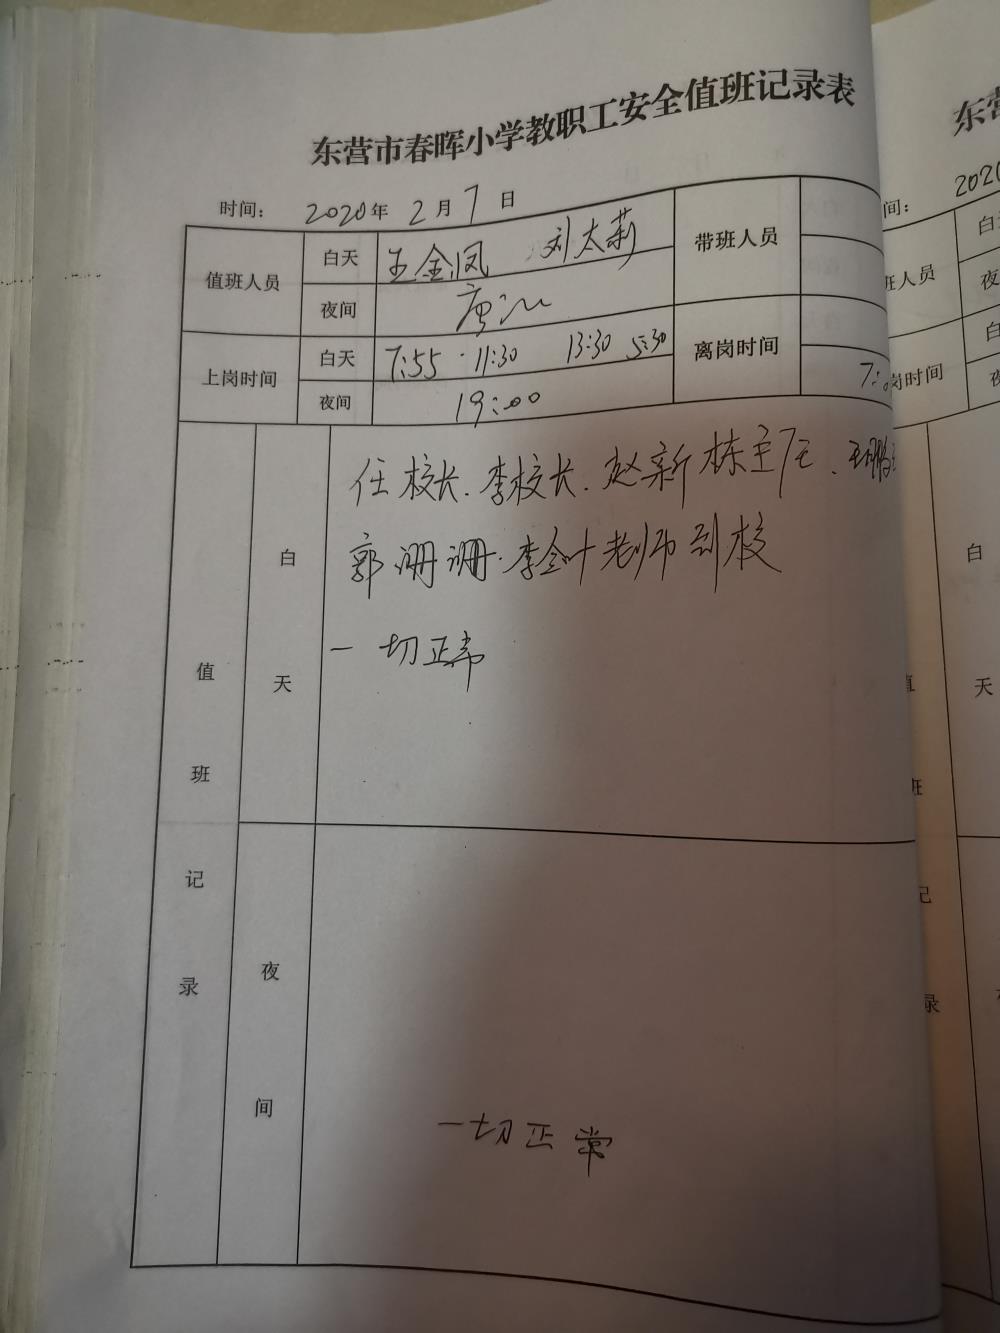 东营市春晖小学教职工安全值班记录表
时间: 2020年 2月 7日
值班人员 白天 王金凤 刘太莉 带班人员
夜间
上岗时间 白天 7:55 · 11:30 13:30 5:30 离岗时间
夜间 19:00 7:
值班记录 白天 任校长、李校长、赵新栋主任、
郭珊珊、李金叶老师到校
一切正常
夜间 一切正常
东营
间: 2020
班人员 白
夜
岗时间 白
夜
值班记录 白天